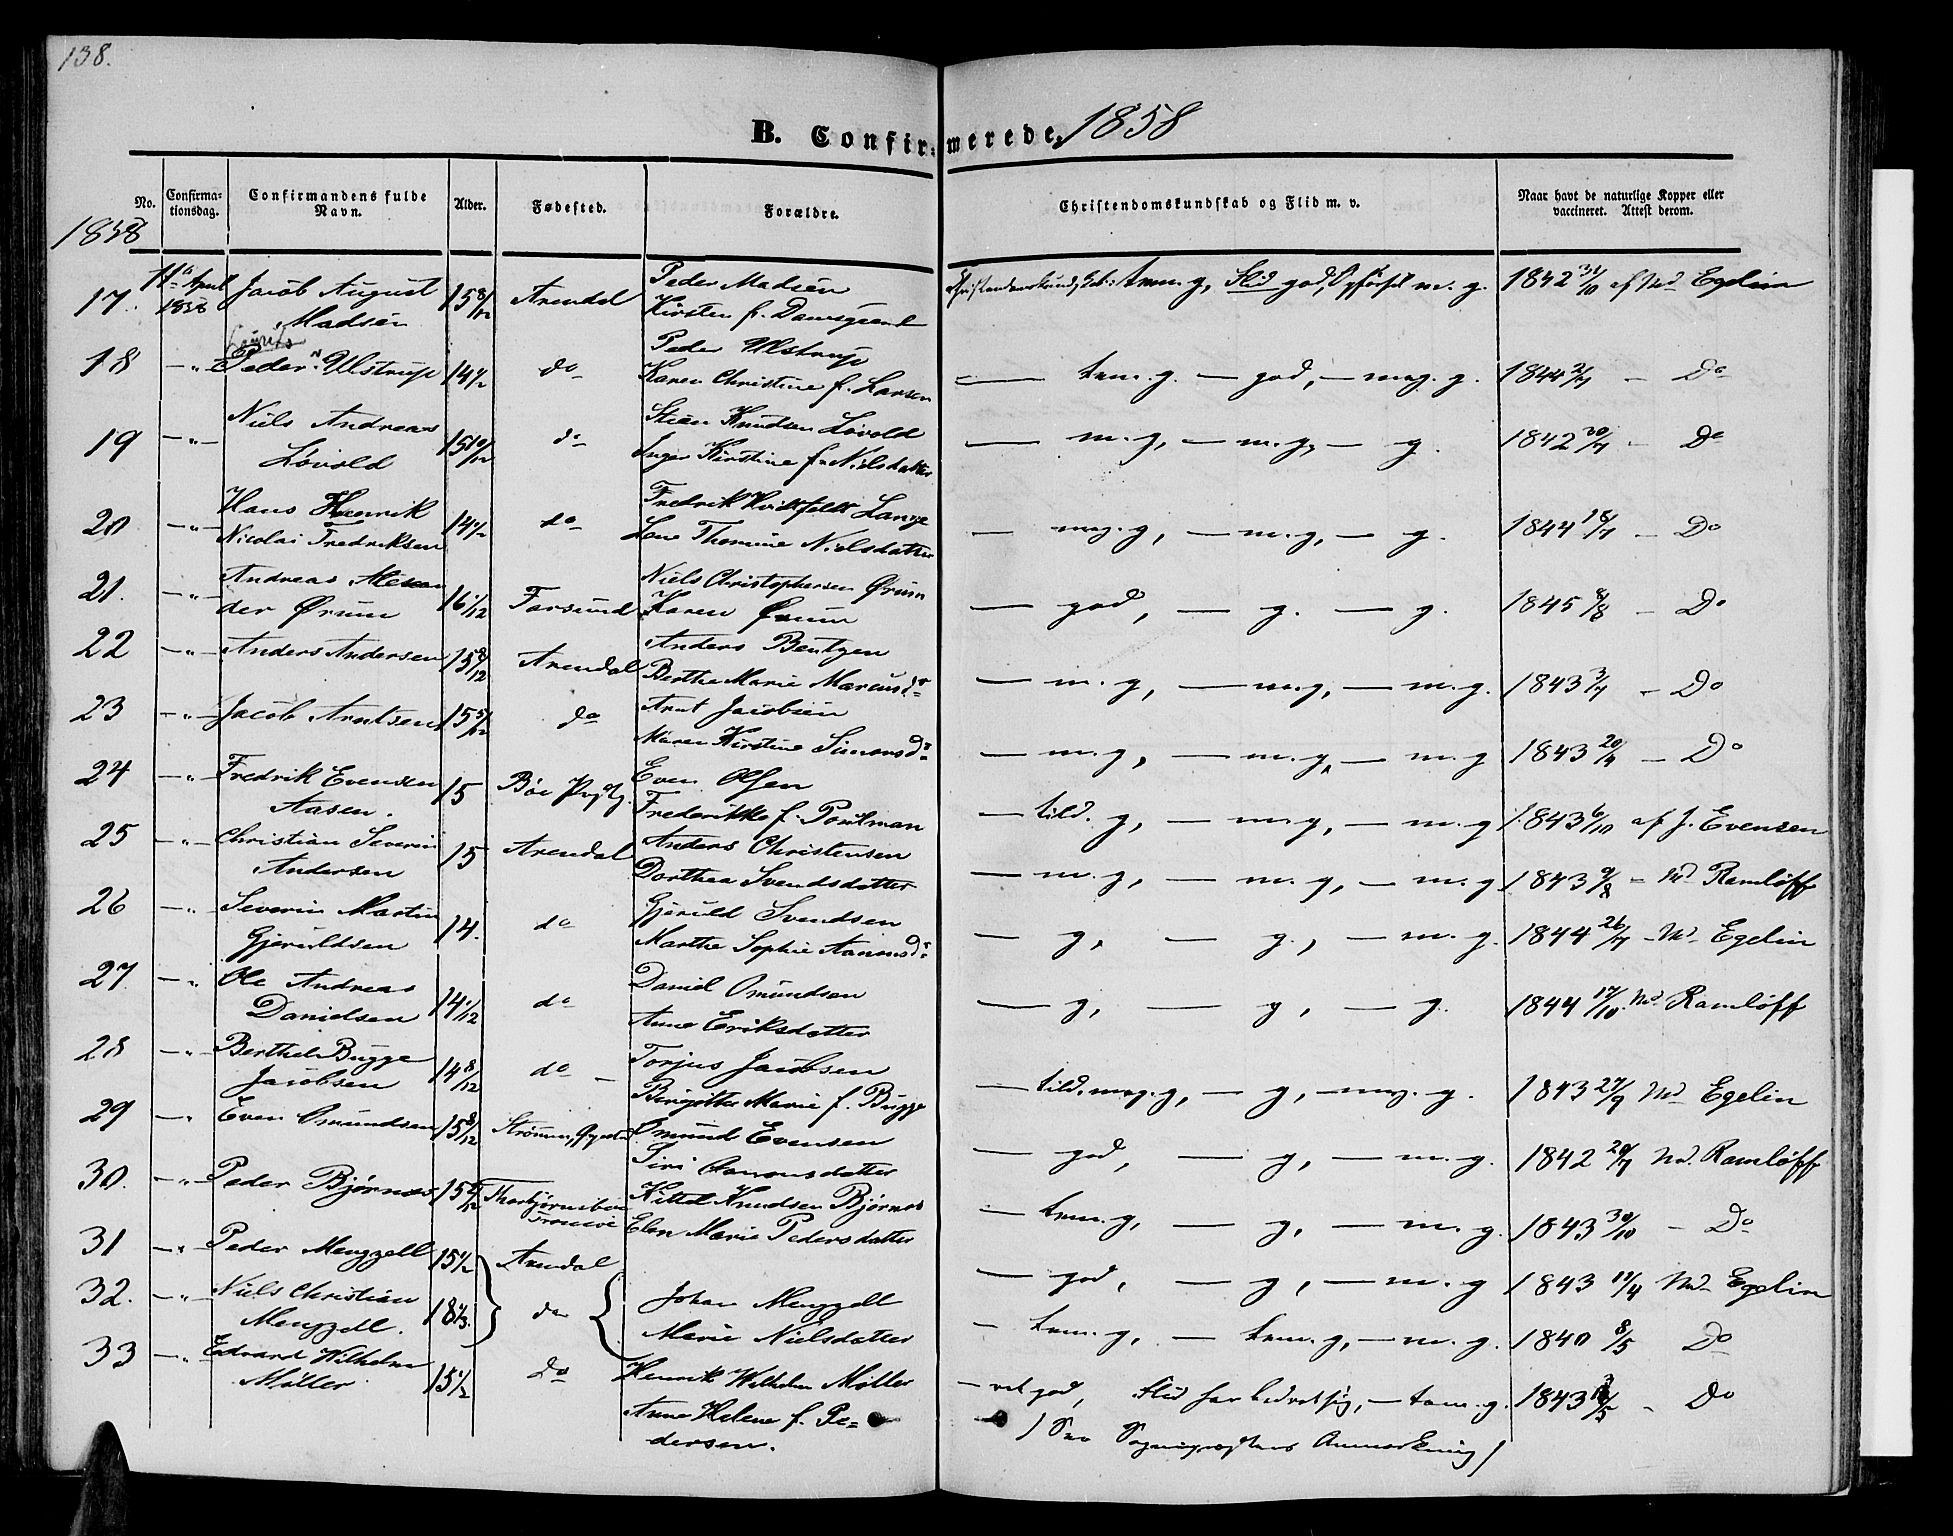 138.
B. Confirmerede, 1858
No.
Confirma-
tionsdag.
Confirmandens fulde
Navn.
Alder.
Fødested.
Forældre.
Christendomskundskab og Flid m. v.
Naar havt de naturlige Kopper eller
vaccineret. Attest derom.
1858
17. 11te April 1858 Jacob August Madsen 15 8/12 Arendal Peder Madsen
Kirsten f. Damsgaard tem. g, Flid god, Opførsel m. g. 1842 31/10 af Md Egelin
18 -"- Peder Ulstrup 14 1/2 do Peder Ulstrup
Karen Christine f. Larsen — tem. g. — god, — meg. g. 1844 2/7 — Do
19 -"- Niels Andreas Løvold 15 10/12 do Knudsen Løvold
Inger Kirstine f. Nielsdatter — m. g, — m. g, — g. 1842 30/7 — Do
20. -"- Hans Henrik
Nicolai Fredriksen 14 1/2 do Fredrik Lange
Lene Thomine Nielsdatter — meg. g, — m. g, — g. 1844 18/7 — Do
21. -"- Andreas Alexan
der Ørum 16 1/12 Farsund Niels Christophersen Ørum
Karen Ørum — god, — g. — g. 1845 8/8 — Do
22 -"- Anders Andersen 15 8/12 Arendal Anders Bentzen
Berthe Marie Marcusdr — m. g, — m. g, — m. g. 1843 3/7 — Do
23 -"- Jacob Arntsen 15 5/12 do Arnt Jacobsen
Maren Kirstine Simonsdr — m. g, — m. g, — m. g 1843 20/7 — Do
24 -"- Fredrik Evensen
Aasen. 15 Even Olsen
Frederikke f. Poulman — tild. g, — m. g, — m. g 1843 6/10 af J. Evensen
25 -"- Christian Severin
Andersen 15 Arendal Anders Christensen
Dorthea Svendsdatter — m. g, — m. g, — m. g 1843 9/8 — Md Ramløff
26 -"- Severin Martin
Gjeruldsen 14. do Gjeruld Svendsen
Marthe Sophie Aanonsdr — g, — g., — m. g. 1844 26/7 — Md Egelin
27. -"- Ole Andreas
Danielsen 14 1/12 do Daniel Omundsen
Anne Eriksdatter — g, — g, — g. 1844 17/10 Md. Ramløff
28 -"- Berthel Bugge
Jacobsen 14 8/12 do Torjus Jacobsen
Birgitte Marie f. Bugge — tild. meg. g, — g, — meg. g. 1843 27/9 Md Egelin
29 -"- Even Omundsen 15 8/12 Omund Evensen
Siri Aanonsdatter — god, — g, — m. g. 1842 20/7 Md. Ramløff
30. -"- Peder Bjørnes Kittel Knudsen Bjørnes
Elen Marie Pedersdatter — tem. g, — g, — m. g. 1843 30/10 — Do
31 -"- Peder Mengzell 15 1/2 Arendal — god, — g, — m. g 1843 19/4 Md Egelin
32. -"- Niels Christian
Mengzell. 18 1/3. do Johan Mengzell
Marie Nielsdatter — tem. g, — tem. g, — m. g 1840 8/5 Do
33 -"- Edvard Wilhelm
Møller 15 1/2 do Henrik Wilhelm Møller
Anne Helene f. Pe-
dersen. — ret god, Flid har bedret sig, — tem. g. 1843 — Do
(See Sogneprestens Anmerkning)